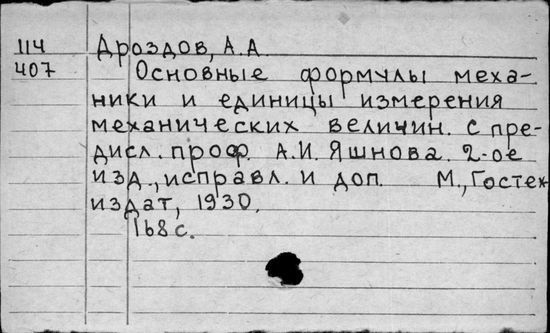 114 Дроздов, А.А.
407 Основные формулы меха-
ники и единицы измерения
механических величин. С пре-
дисл. проф. А.И. Яшнова. 2-ое
изд., исправл. и доп. М., Гостех-
издат, 1930.
168 с.